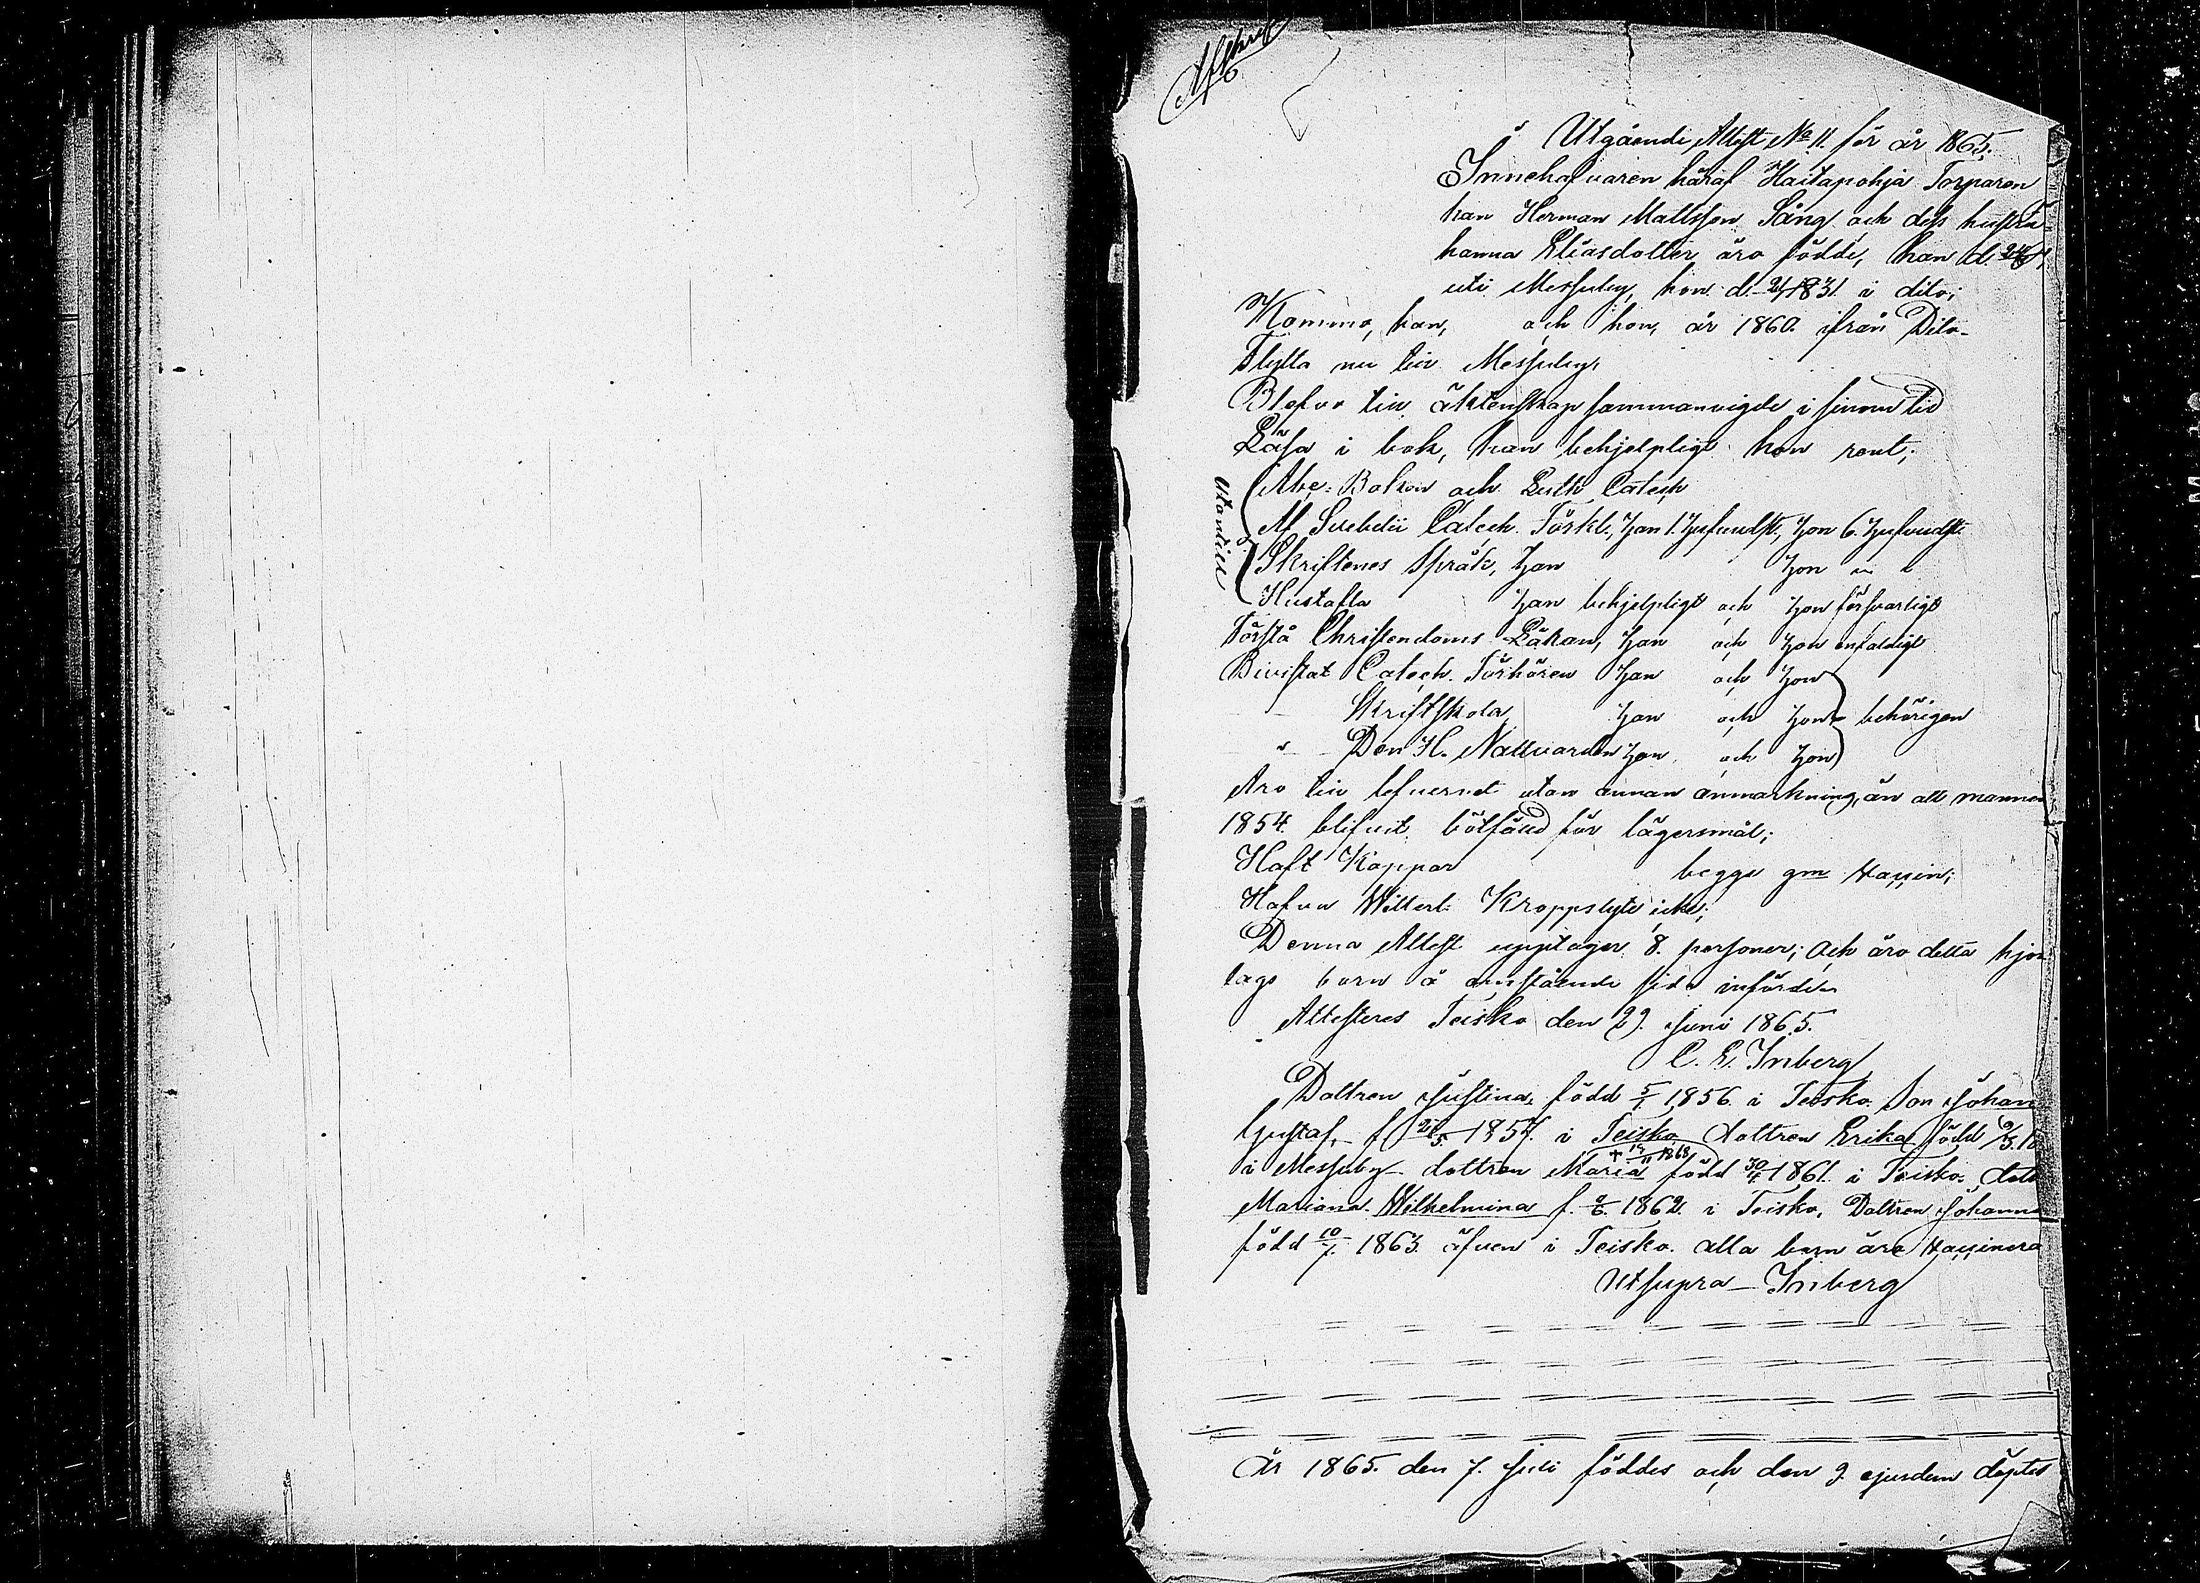 Afskrift
Utgående Attest No 11 för år 1865.
Innehafvaren häraf Haitapohja Torparen
han Herman Mattsson Lång och dess hustru
hanna Eliasdotter äro födde, han d.
uti Messuby, hon d. 21/1 1831 i dito;
Komma, han, och hon, år 1860 ifrån Dito
Flytta nu till Messuby,
Blefvo till äktenskap sammanvigde i sinom tid
Läsa i bok, han behjelpligt hon rent;
utantill
Abc-Boken och Luth Catech
M. Svebelii Catech. Förkl., han 1. hufvudst., hon 6. hufvudst.
Skriftenes Språk, han hon
Hustafla han behjelpligt och hon försvarligt
Förstå Christendoms Läran, han och hon enfaldigt
Bivistat Catech. Förhören han och hon
Skriftskola han och hon behörigen
" Den H. Nattvarden han och hon
Äro till lefvernet utan annan anmärkning, än att mannen
1854 blifvit bötfäld för lägersmål;
Haft Koppor begge gm vaccin;
Hafva Witterl. Kroppslyte icke;
Denna Attest upptager 8. personer; och äro detta hjon
lags barn å omstående sida införde
Attesteres Teisko den 29. Juni 1865.
C. E. Inberg
Dottren Justina, född 5/1 1856 i Teisko. Son Johan
Gustaf, f. 1857 i Teisko dottren Erika född
† 1868
i Messuby. dottren Maria född 30/4 1861. i Teisko. dott
Mariana Wilhelmina f. 1862 i Teisko, Dottren Johanna
född 10/7 1863 äfven i Teisko. alla barn äro vaccinera
Utsupra Inberg
År 1865 den 7. Juli föddes och den 9 ejusdem döptes